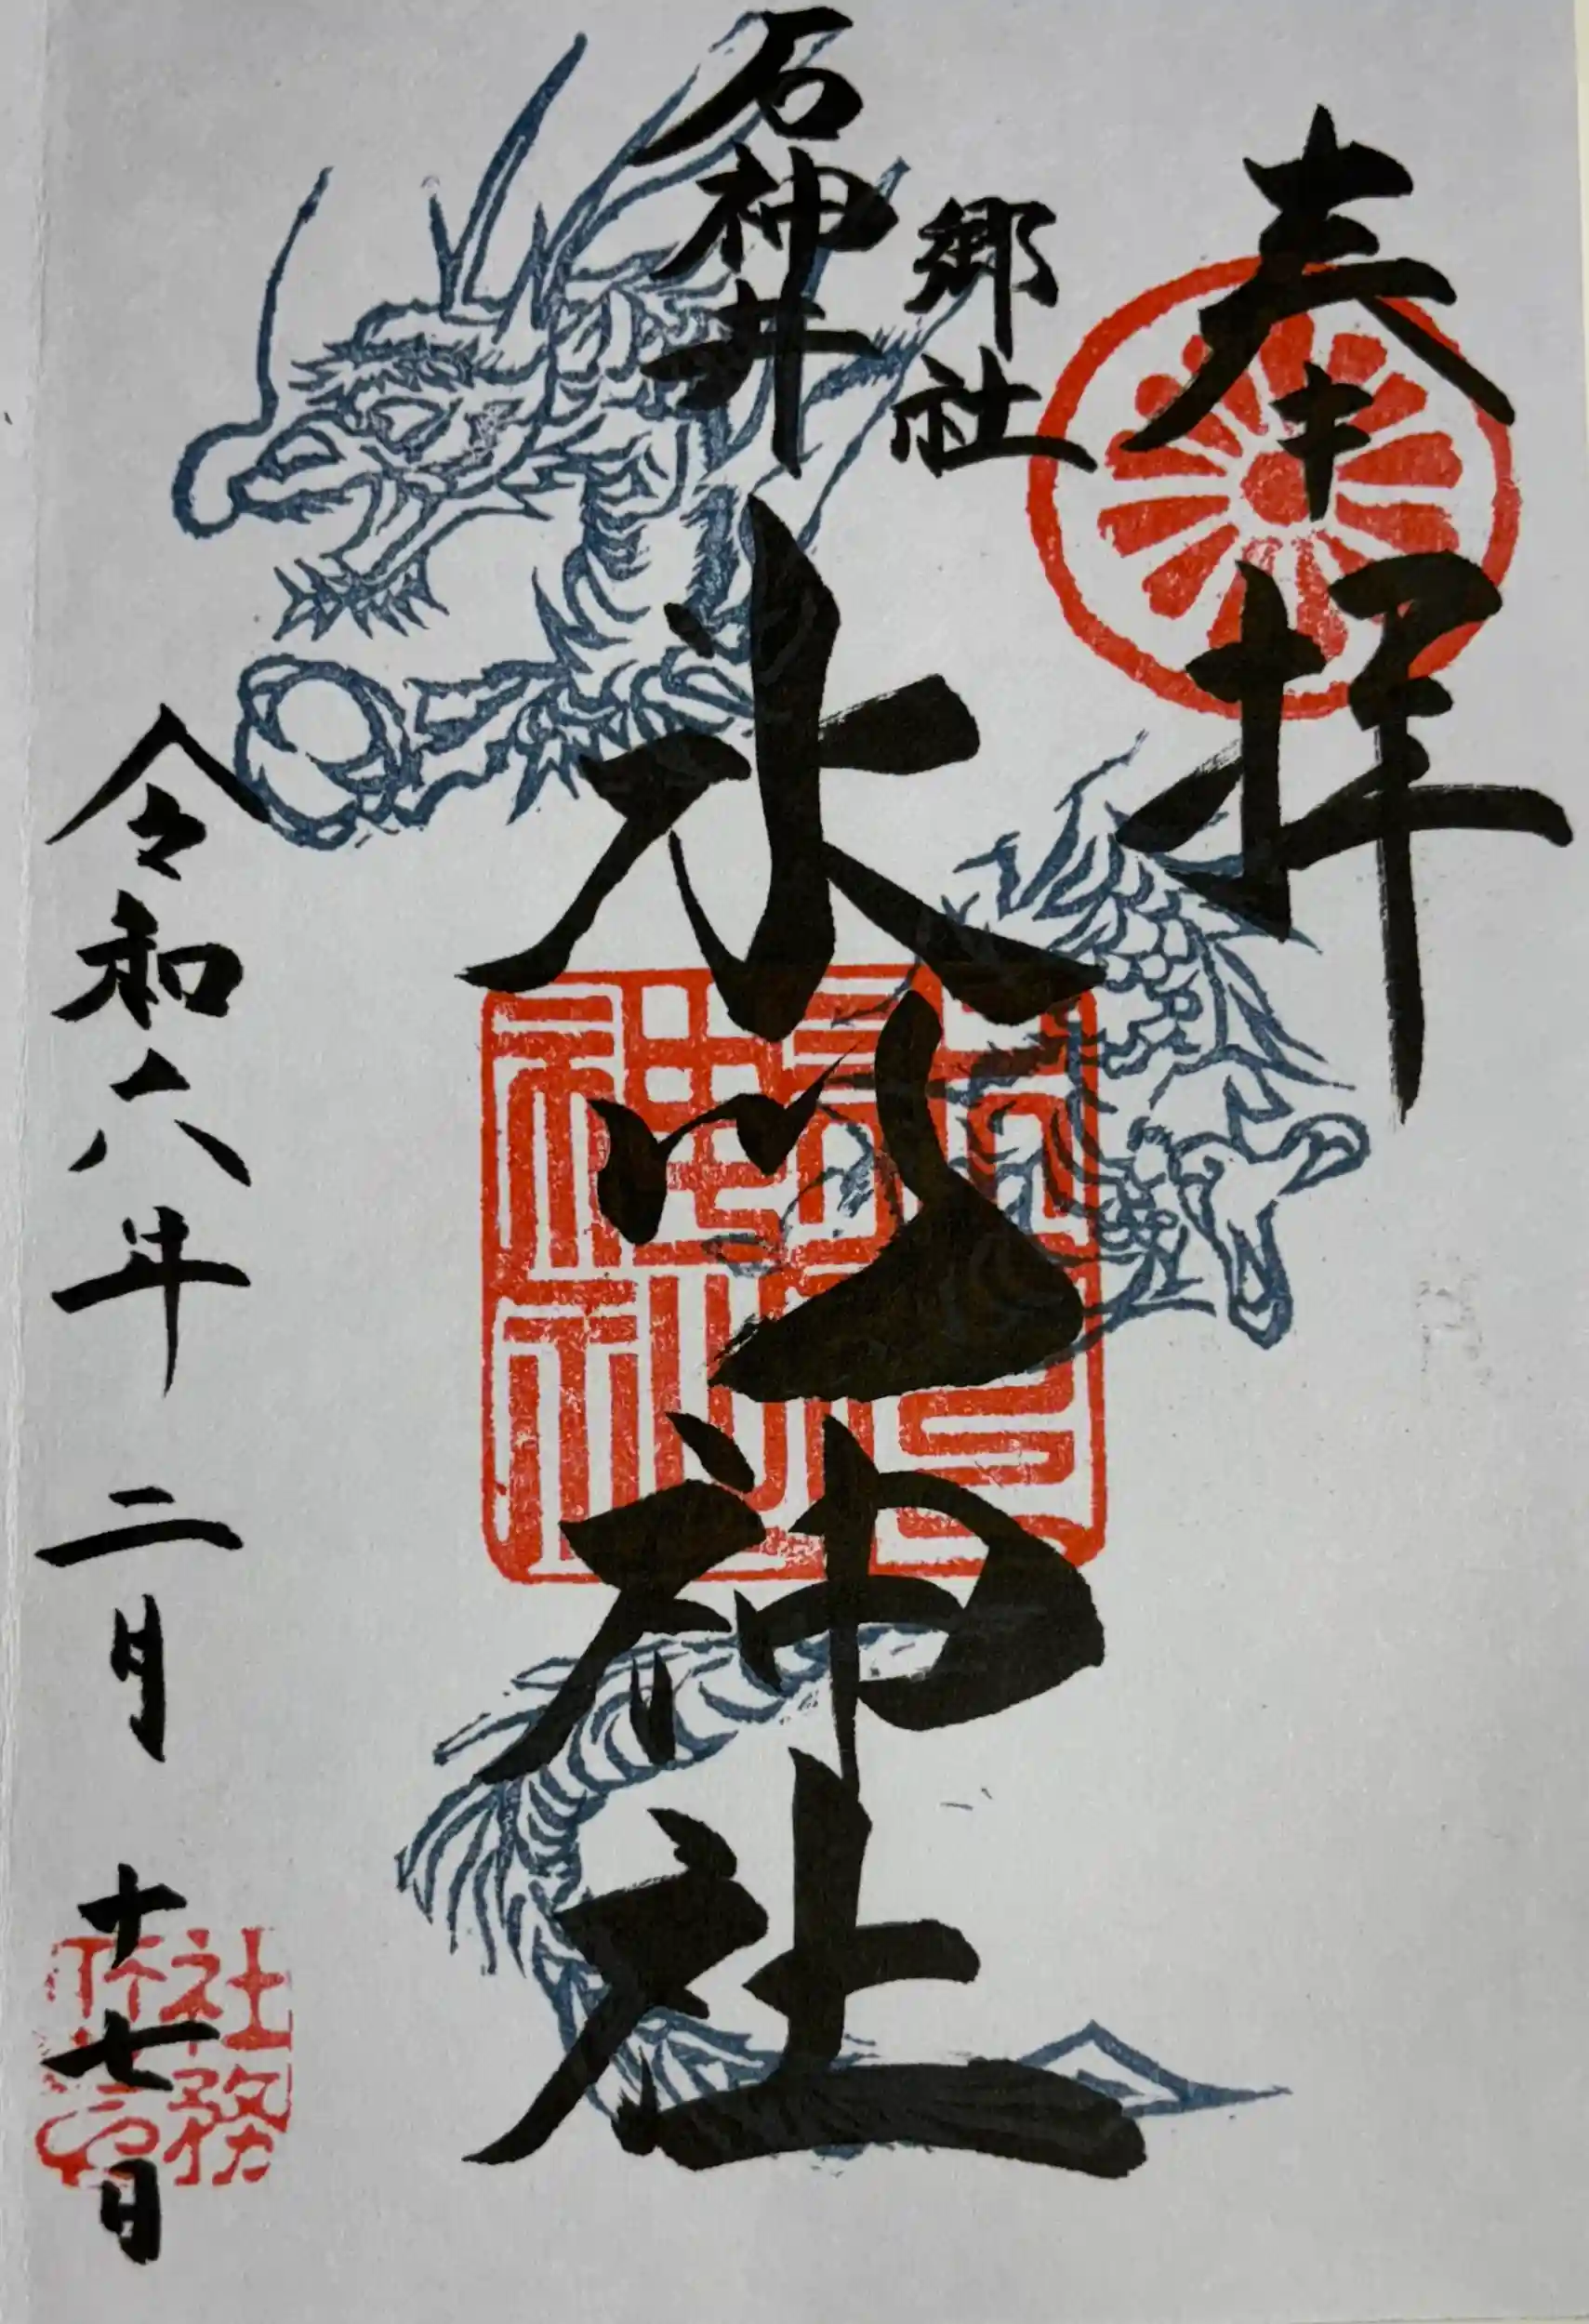 奉拝
郷社
石神井
氷川神社
神社
令和六年二月十七日
社務